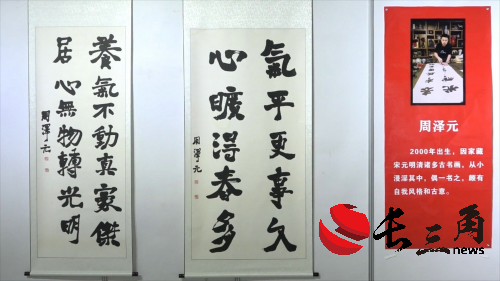 養氣不動真豪傑
居心無物轉光明
周澤元
氣平更事久
心曠得春多
周澤元
周泽元
2000年出生，因家藏
宋元明清诸多古书画，从小
浸淫其中，俱一书之，颇有
自我风格和古意。
长三角
news